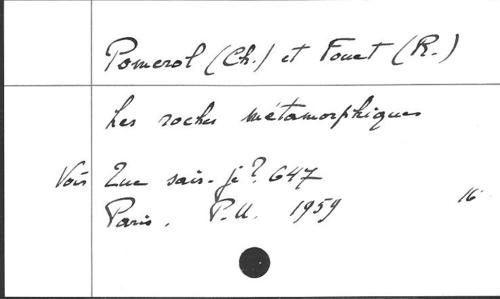 Pomerol (Ch.) et Fouet (R.)
Les roches métamorphiques
Voir Que sais-je? 647
Paris. P.U. 1959 16